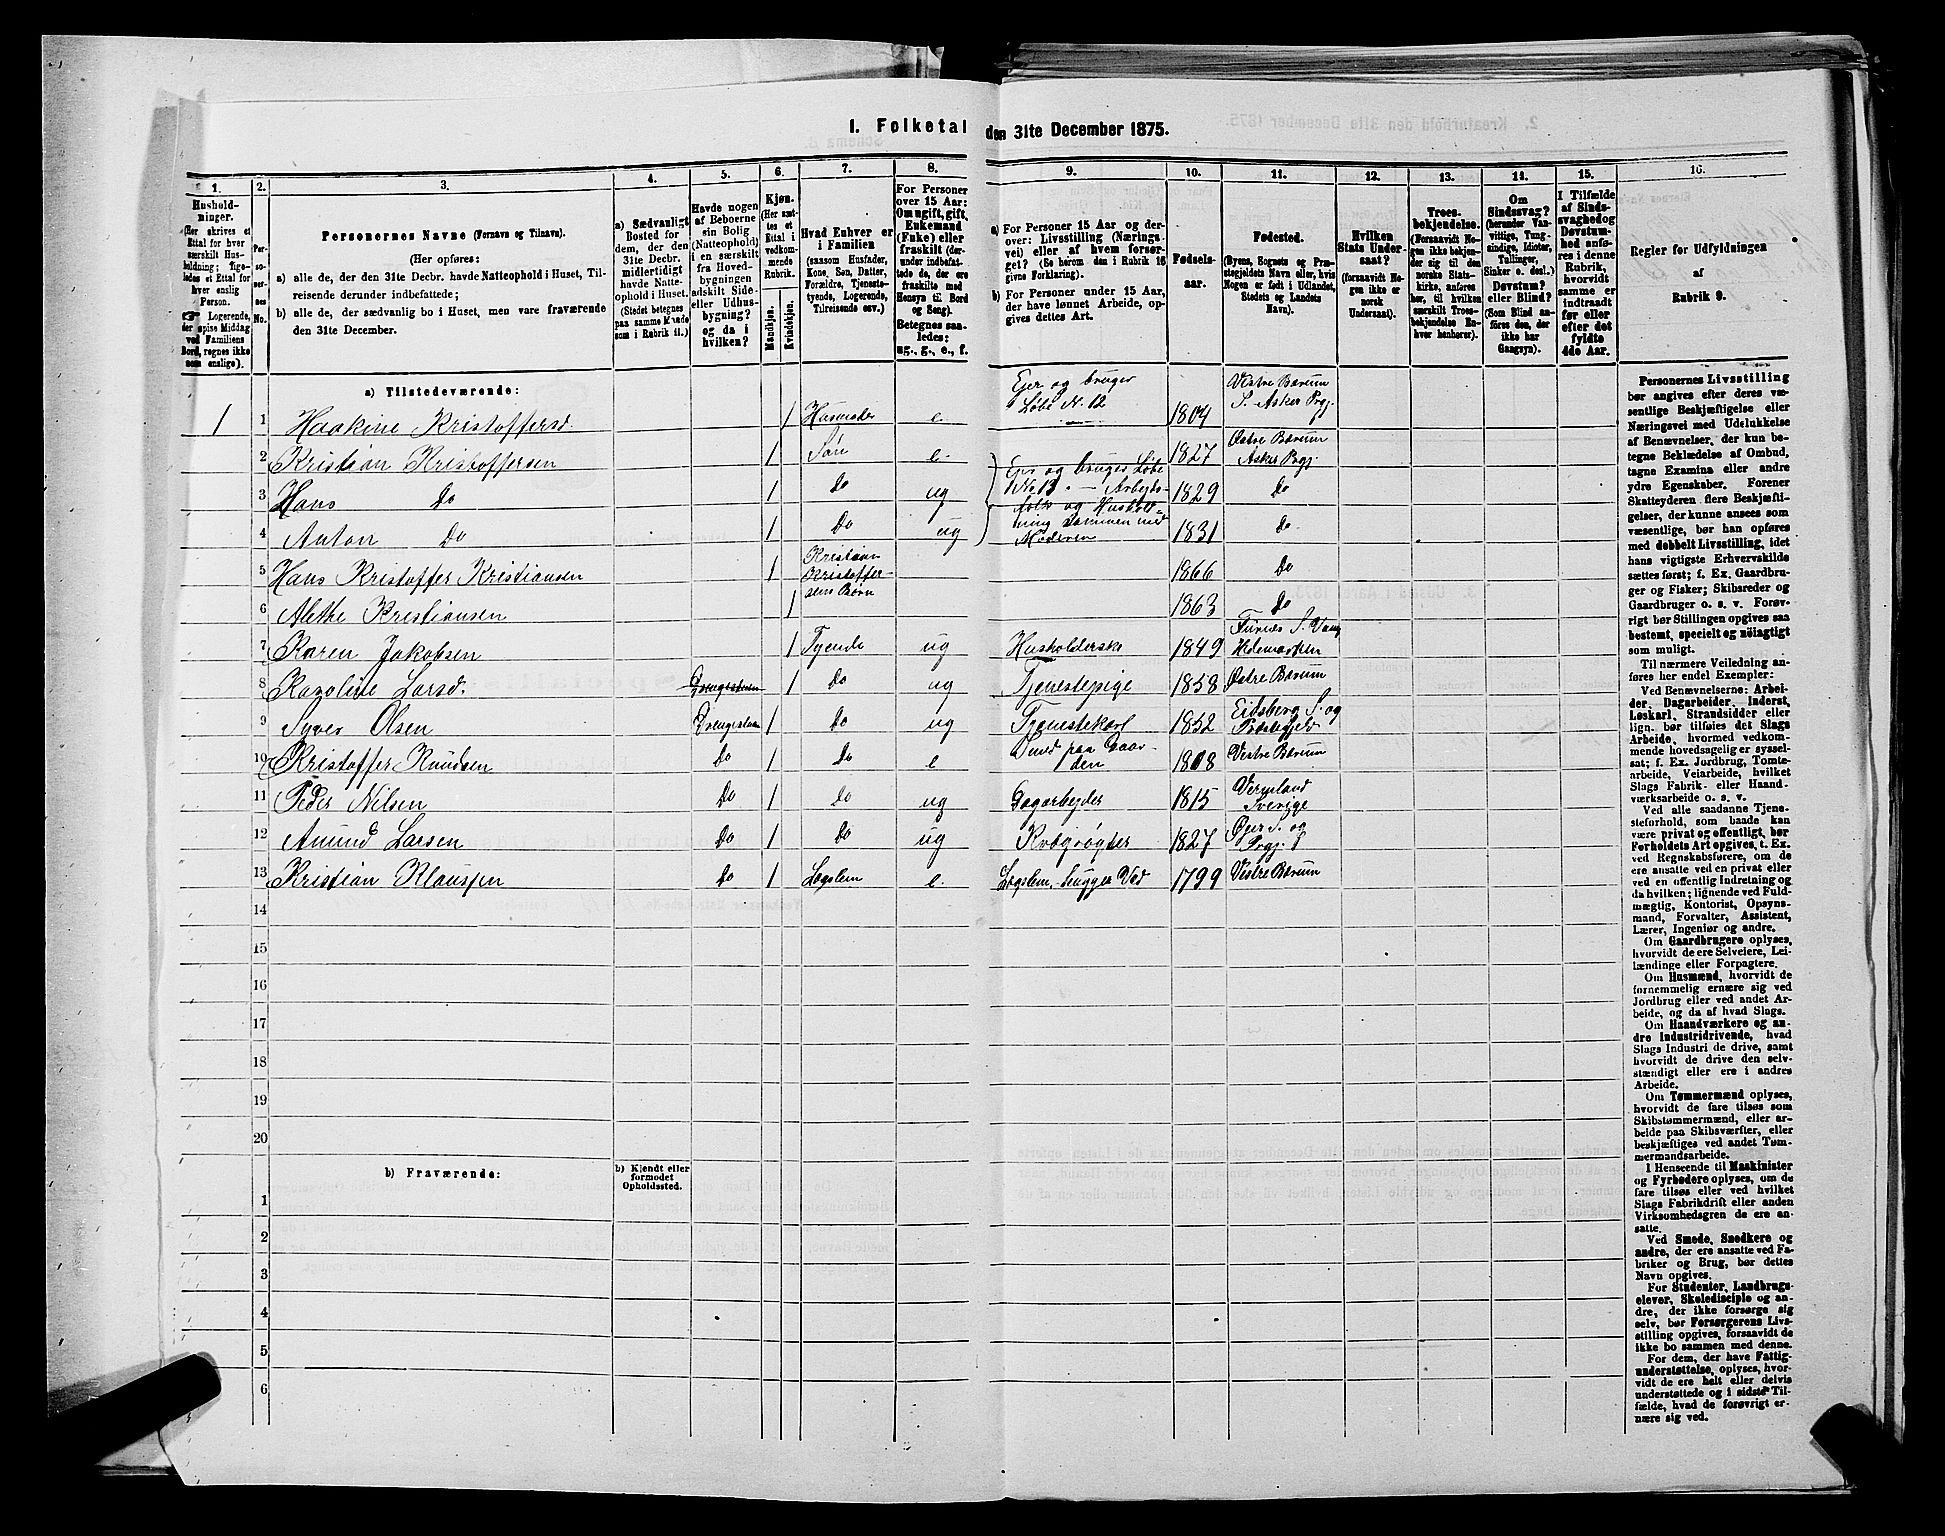 1. Folketal den 31te December 1875.
1. 2. 3. 4. 5. 6. 7. 8. 9. 10. 11. 12. 13. 14. 15. 16.
Husholdninger.
(Her skrives et
Ettal for hver
særskilt Husholdning;
ligeledes et Ettal for
hver enslig
Person.
Logerende,
der spise Middag
ved Familiens
Bord, regnes ikke
som enslige).
Personernes No.
Personernes Navne (Fornavn og Tilnavn).
(Her opføres:
a) alle de, der den 31te Decbr. havde Natteophold i Huset, Tilreisende
derunder indbefattede;
b) alle de, der sædvanlig bo i Huset, men vare fraværende
den 31te December.
a) Sædvanligt
Bosted for
dem, der den
31te Decbr.
midlertidigt
havde Natteophold
i Huset.
(Stedet betegnes
paa samme Maade
som i Rubrik 11.)
Havde nogen
af Beboerne
sin Bolig
(Natteophold)
i en særskilt
fra Hovedbygningen
adskilt Side-
eller Udhusbygning?
og da i
hvilken?
Kjøn.
(Her sættes
et
Ettal i
vedkommende
Rubrik.
Mandkjøn.
Kvindekjøn.
Hvad Enhver er
i Familien
(saasom Husfader,
Kone, Søn, Datter,
Forældre, Tjenestetyende,
Logerende,
Tilreisende osv.)
For Personer
over 15 Aar:
Om ugift, gift,
Enkemand
(Enke) eller
fraskilt (derunder
indbefattede
de, der ere
fraskilte med
Hensyn til Bord
og Seng).
Betegnes saaledes:
ug., g., e., f.
a) For Personer 15 Aar og derover:
Livsstilling (Næringsvei)
eller af hvem forsørget?
(Se herom den i Rubrik 16
givne Forklaring).
b) For Personer under 15 Aar,
der have lønnet Arbeide, opgives
dettes Art.
Fødselsaar.
Fødested.
(Byens, Sognets og Præstegjeldets
Navn eller, hvis
Nogen er født i Udlandet,
Stedets og Landets
Navn).
Hvilken
Stats Undersaat?
(forsaavidt Nogen
ikke er
norsk
Undersaat).
Troesbekjendelse.
(Forsaavidt Nogen
ikke bekjender
sig til den
norske Statskirke,
anføres
her, til hvilken
særskilt Troesbekjendelse
Enhver
henhører).
Om
Sindssvag?
(herunder Vanvittige,
Tungsindige,
Idioter,
Tullinger,
Sinker o. desl.)
Døvstum?
eller Blind?
(Som Blind anføres
den, der
ikke har
Gangsyn).
I Tilfælde
af Sindssvaghed
og
Døvstumhed
anføres
i denne
Rubrik,
hvorvidt
samme er
indtraadt
før eller
efter det
fyldte
4de Aar.
Regler for Udfyldningen
af
Rubrik 9.
a) Tilstedeværende:
1 1 Haakine Kristoffersd. 1 e Ejer og bruger Løbe No. 12 1804 Vestre Bærum S. Asker Prgj.
2 Kristian Kristoffersen 1 Søn e. Ejer og bruger Løbe No 13 1827 Østre Bærum Asker Prgj.
3 Hans Do 1 Do ug Arbejdsfolk og Husholdning sammen med 1829 Do
4 Anton Do 1 Do ug Moderen 1831 Do
5 Hans Kristoffer Kristiansen 1 Kristian Kristoffersens Børn 1866 Do
6 Alethe Kristiansen 1 1863 Do
7 Karen Jakobsen 1 Tyende ug Husholderske 1849 Furnes S. Vang Hedemarken
8 Karoline Larsd. 1 Do ug Tjenestepige 1858 Østre Bærum
9 Syver Olsen Drengestuen 1 Do ug Tjenestekarl 1852 Eidsberg S. og Præstegjeld
10 Kristoffer Knudsen Do 1 Do e Smed paa Gaarden 1808 Vestre Bærum
11 Peder Nilsen Do 1 Do ug Dagarbejder 1815 Vermland Sverige
12 Amund Larsen Do 1 Do ug Kvægrøgter 1827 Øjer S. og Prgj.
13 Kristian Klaussen Do 1 Lægslem e. Lægslem, hugger Ved 1799 Vestre Bærum
14
15
16
17
18
19
20
b) Fraværende:
b) Kjendt eller
formodet
Opholdssted.
1
2
3
4
5
6
Personernes Livsstilling
bør angives efter deres væsentlige
Beskjæftigelse eller
Næringsvei med Udelukkelse
af Benævnelser, der kun betegne
Beklædelse af Ombud,
tagne Examina eller andre
ydre Egenskaber. Forener
Skatteyderen flere Beskjæftigelser,
der kunne ansees som
væsentlige, bør han opføres
med dobbelt Livsstilling, idet
hans vigtigste Erhvervskilde
sættes først; f. Ex. Gaardbruger
og Fisker; Skibsreder og
Gaardbruger o. s. v. Forøvrigt
bør Stillingen opgives saa
bestemt, specielt og nøiagtigt
som muligt.
Til nærmere Veiledning anføres
her endel Exempler:
Ved Benævnelserne: Arbeider,
Dagarbeider, Inderst,
Løskarl, Strandsidder eller
lign. bør tilføies det Slags
Arbeide, hvormed vedkommende
hovedsagelig er sysselsat;
f. Ex. Jordbrug, Tomtearbeide,
Veiarbeide, hvilket
Slags Fabrik- eller Haandværksarbeide
o. s. v.
Ved alle saadanne Tjenesteforhold,
som baade kan
være privat og offentligt, bør
Forholdets Art opgives, t. Ex.
ved Regnskabsførere, om de
ere ansatte ved en privat eller
ved en offentlig Indretning og
da hvilken; lignende ved Fuldmægtig,
Kontorist, Opsynsmand,
Forvalter, Assistent,
Lærer, Ingeniør og andre.
Om Gaardbrugere oplyses,
hvorvidt de ere Selveiere, Leilændinge
eller Forpagtere.
Om Husmænd, hvorvidt de
fornemmelig ernære sig ved
Jordbrug eller ved andet Arbeide,
og da af hvad Slags.
Om Haandværkere og andre
Industridrivende, hvad
Slags Industri de drive, samt
hvorvidt de drive den selvstændigt
eller ere i andres
Arbeide.
Om Tømmermænd oplyses,
hvorvidt de fare tilsøs som
Skibstømmermænd, eller arbeide
paa Skibsværfter, eller
beskjæftiges ved andet Tømmermandsarbeide.
I Henseende til Maskinister
og Fyrbødere oplyses, om de
fare tilsøs eller ved hvilket
Slags Fabrikdrift eller anden
Virksomhedsgren de ere ansatte.
Ved Smede, Snedkere og
andre, der ere ansatte ved Fabriker
og Brug, bør dettes
Navn opgives.
For Studenter, Landbrugselever,
Skoledisciple og andre,
der ikke forsørge sig
selv, bør Forsørgerens Livsstilling
opgives, forsaavidt de
ikke bo sammen med denne.
For dem, der have Fattigunderstøttelse,
oplyses, hvorvidt
de ere helt eller delvis
understøttede og i sidste Tilfælde,
hvad de forøvrigt ernære
sig ved.